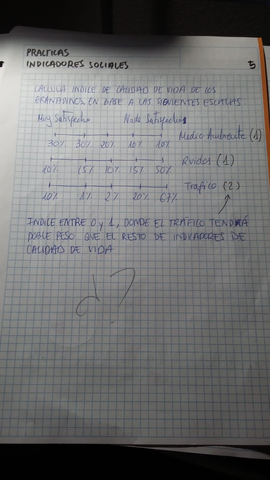 PRACTICAS
INDICADORES SOCIALES
5
CALCULA INDICE DE CALIDAD DE VIDA DE LOS
GRANADINOS EN BASE A LAS SIGUIENTES ESCALAS
Muy Satisfecho Nada Satisfecho
Medio Ambiente (1)
30% 30% 20% 10% 10%
Ruidos (1)
10% 15% 10% 15% 50%
Trafico (2)
10% 1% 2% 20% 67%
INDICE ENTRE 0 y 1, DONDE EL TRÁFICO TENDRÁ
DOBLE PESO QUE EL RESTO DE INDICADORES DE
CALIDAD DE VIDA